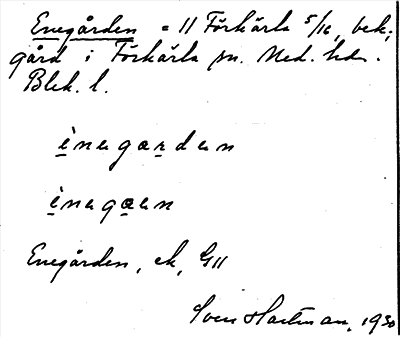 Enegården = 11 Förkärla 5/16, bek.
gård i Förkärla sn. Med. hd.
Blek. l.
ènagardan
ènagɑan
Enegården, ek, G11
Sven Hartman, 1930